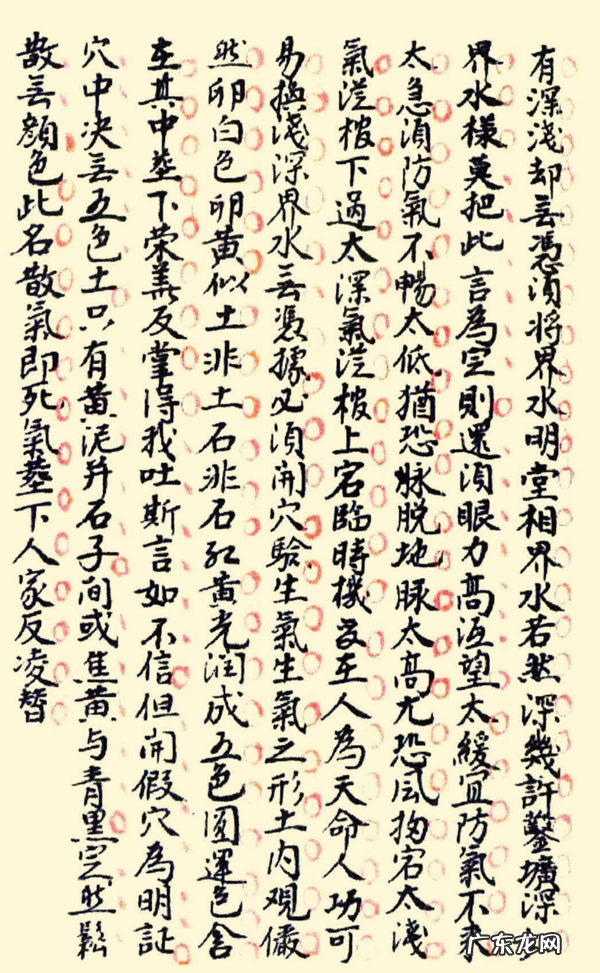 有深淺却無憑須將界水明堂相界水若然深幾許鑿壙深
界水樣莫把此言為定則還須眼力高低望太緩宜防氣不來
太急須防氣不暢太低猶恐脉脫地脉太高尤恐風拘宕太淺
氣從棺下過太深氣從棺上宕臨時機變在人為天命人功可
易換淺深界水無憑據必須開穴驗生氣生氣之形土內觀儼
然卵白色卵黃似土非土石非石紅黃光潤成五色圓運包含
在其中塟下荣華反掌得我吐斯言如不信但開假穴為明証
穴中决無五色土只有黃泥并石子間或焦黃与青黑定然鬆
散無顏色此名散氣即死氣塟下人家反凌替
广东龙网